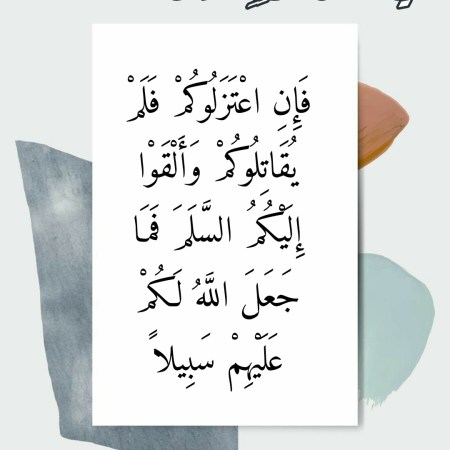 فَإِنِ اعْتَزَلُوكُمْ فَلَمْ
يُقَاتِلُوكُمْ وَأَلْقَوْا
إِلَيْكُمُ السَّلَمَ فَمَا
جَعَلَ اللَّهُ لَكُمْ
عَلَيْهِمْ سَبِيلاً